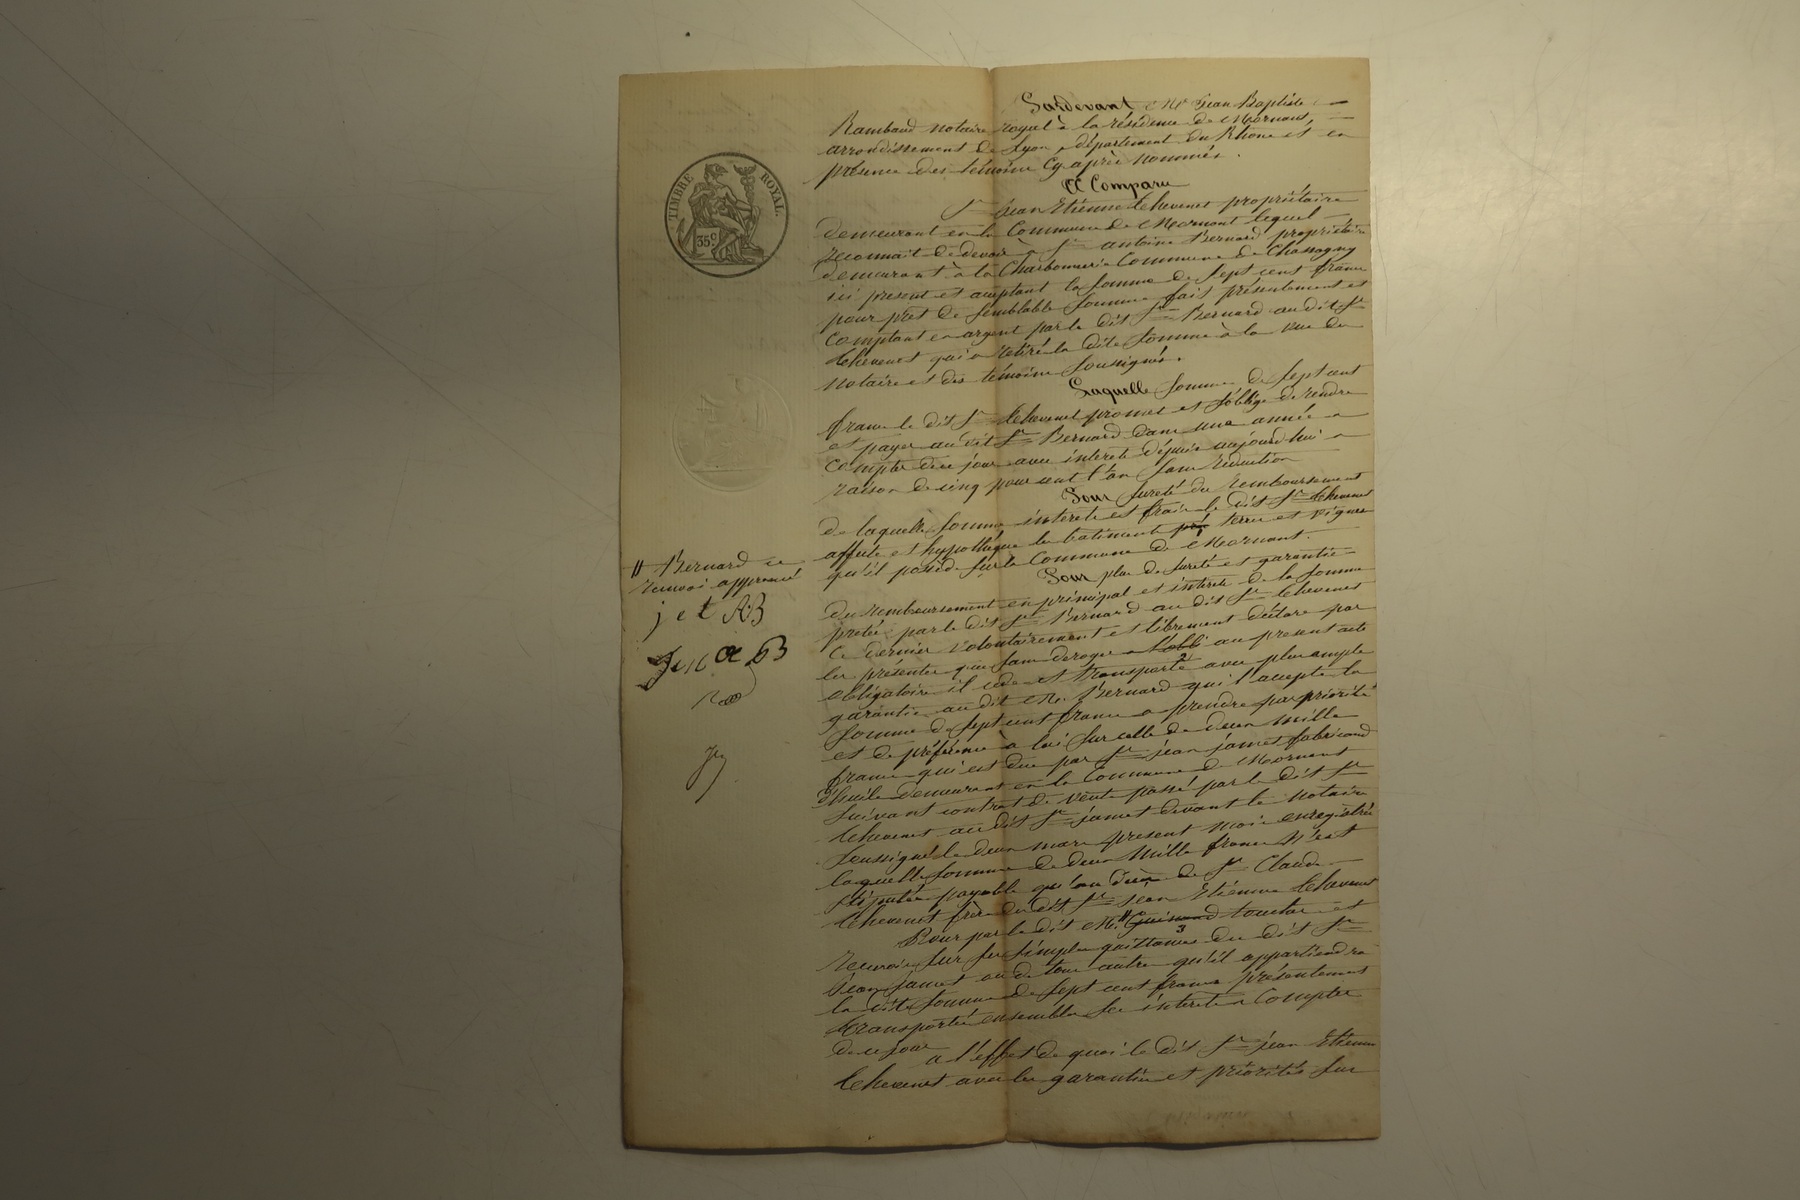 TIMBRE ROYAL
35c
Pardevant Me Jean Baptiste
Rambaud notaire royal à la résidence de Mornant,
arrondissement de Lyon, département du Rhone et en
présence des témoins cy après nommés.
A Comparu
Sr jean Etienne Thevenet propriétaire
demeurant en la Commune de Mornant lequel
reconnait de devoir à Sr antoine Bernard propriétaire
demeurant à la Charbonnerie Commune de Chassagny
ici présent et acceptant la somme de Sept cent francs
pour prêt de semblable somme fait présentement et
Comptant en argent par le dit Sr Bernard au dit Sr
Thevenet qui a retiré la dite somme à la vue du
notaire et des témoins soussignés.
Laquelle somme de sept cent
francs le dit Sr Thevenet promet et s'oblige de rendre
et payer au dit Sr Bernard dans une année a
compter de ce jour avec intérêts depuis aujourd'hui a
raison de cinq pour cent l'an sans réduction
Pour sureté du remboursement
de laquelle somme intérêts et frais le dit Sr Thevenet
affecte et hypothèque les batiments pré terres et vignes
qu'il possède sur la Commune de Mornant.
Pour plus de sureté et garantie
du remboursement en principal et intérêts de la somme
prêtée par le dit Sr Bernard au dit Sr Thevenet
Ce dernier volontairement et librement déclare par
les présentes que sans déroger a l'obli au present acte
obligatoire il cède et transporte avec plus ample
garantie au dit Mr. Bernard qui l'accepte la
somme de sept cent francs a prendre par priorité
et de préférence à lui sur celle de deux mille
francs qui est due par Sr jean jamet fabricand
d'huile demeurant en la Commune de Mornant
suivant contrat de vente passé par le dit Sr
Thevenet au dit Sr jamet devant le notaire
soussigné le deux mars present mois enregistré
laquelle somme de deux mille francs n'est
stipulée payable qu'au décès de Sr Claude
Thevenet frère du dit Sr jean Etienne Thevenet
Pour par le dit Mr. " Guinand toucher et
recevoir sur ses simples quittances du dit Sr
jean jamet ou de tous autre qu'il appartiendra
la dite somme de sept cent francs présentement
transportée ensemble les intérêts a Compter
de ce jour
a l'effet de quoi le dit Sr jean Etienne
Thevenet avec les garanties et priorités sur
" Bernard ce
renvoi approuvé
j e t AB